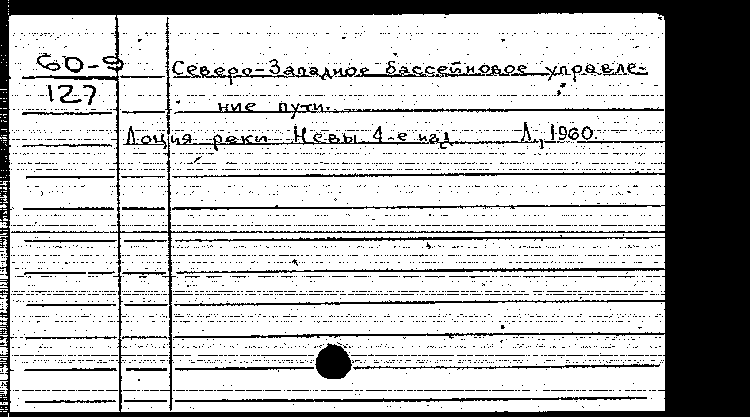 60-9
127
Северо-Западное бассейновое управле-
ние пути.
Лоция реки Невы 4-е изд. Л., 1960.